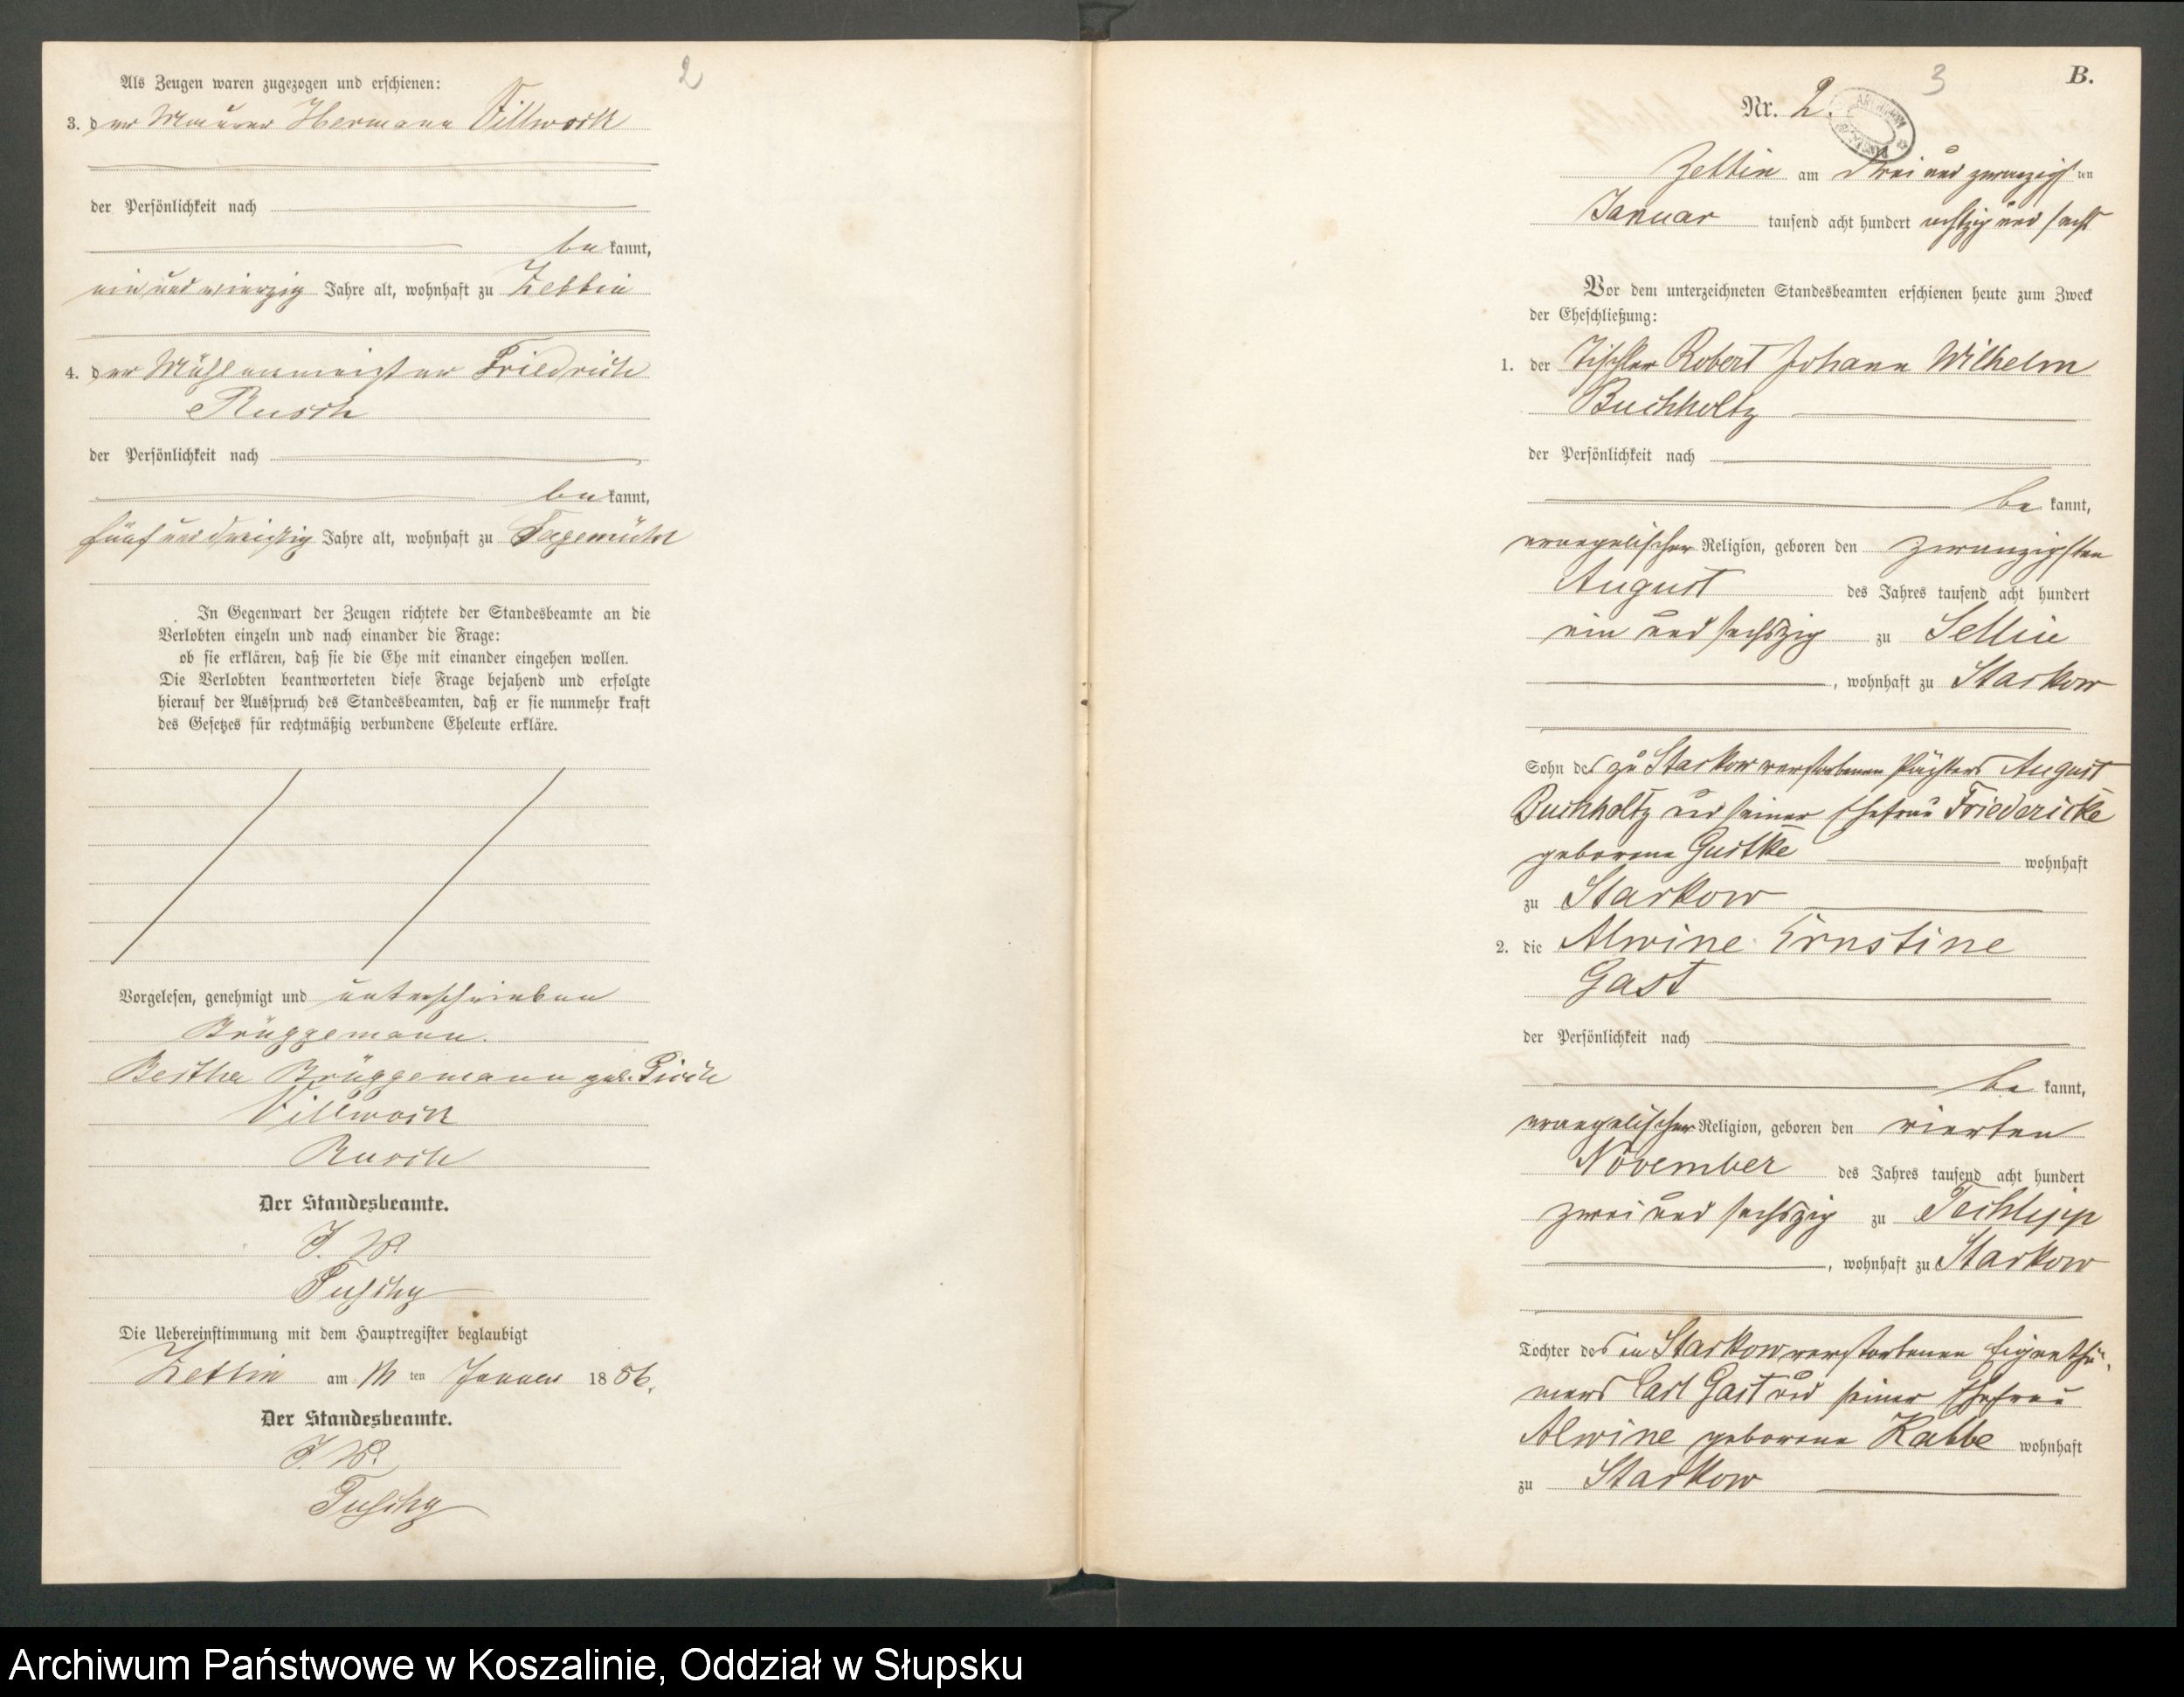 2
Als Zeugen waren zugezogen und erschienen:
3. der Maurer Hermann Villwock
der Persönlichkeit nach
be kannt,
ein und vierzig Jahre alt, wohnhaft zu Zettin
4. der Mühlenmeister Friedrich
Rusch
der Persönlichkeit nach
be kannt,
fünf und dreißig Jahre alt, wohnhaft zu Papenmühl
In Gegenwart der Zeugen richtete der Standesbeamte an die
Verlobten einzeln und nach einander die Frage:
ob sie erklären, daß sie die Ehe mit einander eingehen wollen.
Die Verlobten beantworteten diese Frage bejahend und erfolgte
hierauf der Ausspruch des Standesbeamten, daß er sie nunmehr kraft
des Gesetzes für rechtmäßig verbundene Eheleute erkläre.
Vorgelesen, genehmigt und unterschrieben
Brüggemann.
Bertha Brüggemann geb. Pirch
Villwock
Rusch
Der Standesbeamte.
I. V.
Die Uebereinstimmung mit dem Hauptregister beglaubigt
Zettin am ten Januar 1886.
Der Standesbeamte.
I. V.
3
B.
Nr. 2.
Zettin am drei und zwanzigsten
Januar tausend acht hundert achtzig und sechs
Vor dem unterzeichneten Standesbeamten erschienen heute zum Zweck
der Eheschließung:
1. der Tischler Robert Johann Wilhelm
Buchholtz
der Persönlichkeit nach
be kannt,
evangelischer Religion, geboren den zwanzigsten
August des Jahres tausend acht hundert
ein und sechszig zu Sellin
, wohnhaft zu Starkow
Sohn des zu Starkow verstorbenen Pächters August
Buchholtz und seiner Ehefrau Friedericke
geborene Gustke wohnhaft
zu Starkow
2. die Alwine Ernstine
Gast
der Persönlichkeit nach
be kannt,
evangelischer Religion, geboren den vierten
November des Jahres tausend acht hundert
zwei und sechszig zu Techlipp
, wohnhaft zu Starkow
Tochter des in Starkow verstorbenen Eigenthü-
mers Carl Gast und seiner Ehefrau
Alwine geborene Rabbe wohnhaft
zu Starkow
Archiwum Państwowe w Koszalinie, Oddział w Słupsku